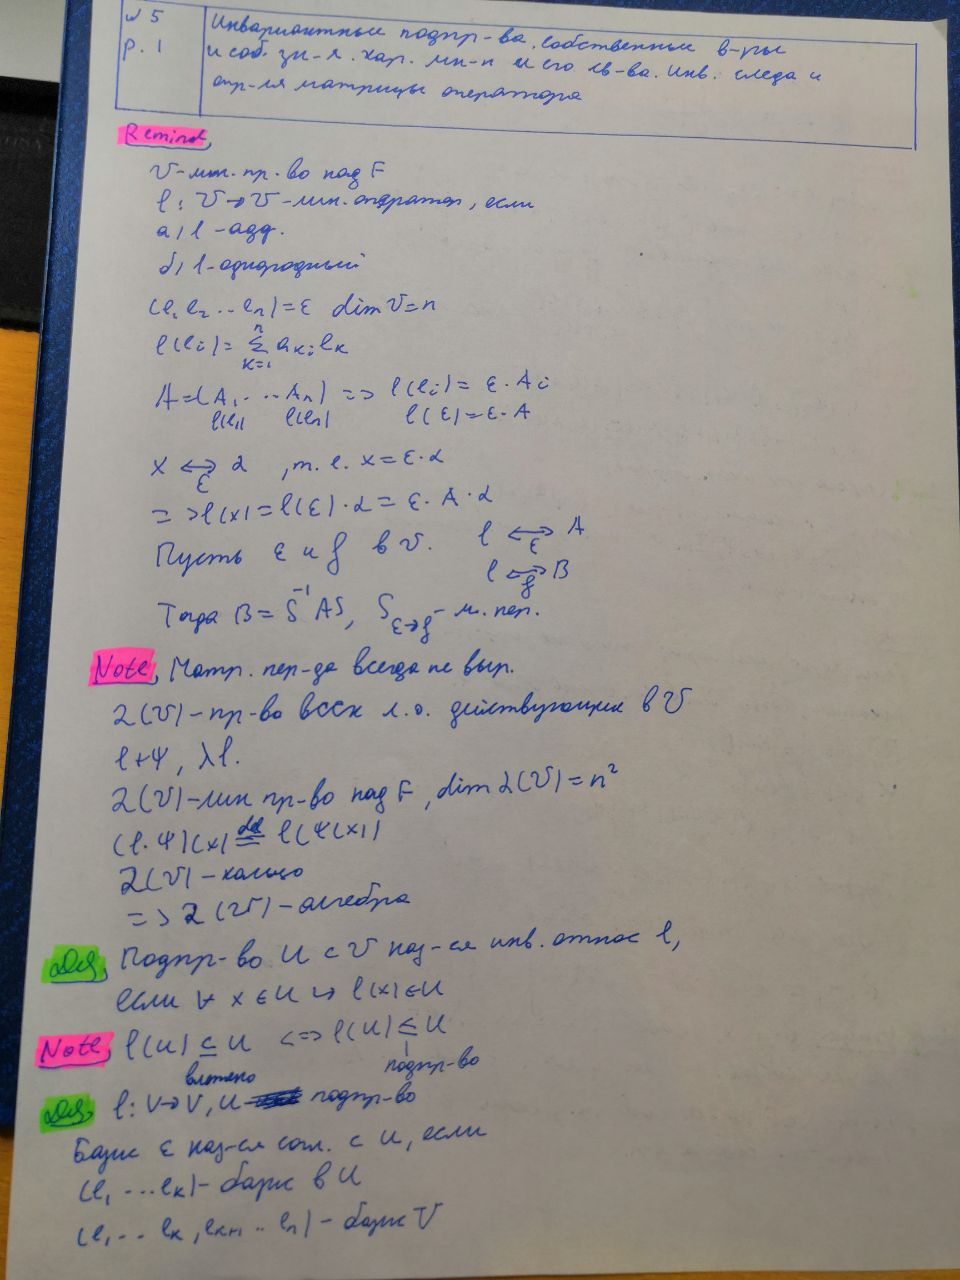 № 5
р. 1
Инвариантные подпр-ва. Собственные в-ры
и соб. зн-я. Хар. мн-н и его св-ва. Инв. следа и
опр-ля матрицы оператора
Remind
V-лин. пр-во над F
φ: V→V - лин. оператор, если
а) φ - адд.
б) φ - однородный
(e₁ e₂ .. eₙ) = ε dim V = n
φ(eᵢ) = Σₖ₌₁ⁿ aₖᵢ eₖ
A = (A₁ ... Aₙ) => φ(eᵢ) = ε · Aᵢ
φ(e₁) φ(eₙ) φ(ε) = ε · A
x ⟷ α , т. е. x = ε · α
ε
=> φ(x) = φ(ε) · α = ε · A · α
Пусть ε и f в V. φ ⟷ A
ε
φ ⟷ B
f
Тогда B = S⁻¹AS, S ε→f - м. пер.
Note, Матр. пер-да всегда не выр.
L(V) - пр-во всех л.о. действующих в V
φ+ψ, λφ.
L(V) - лин пр-во над F, dim L(V) = n²
(φ·ψ)(x) ≝ φ(ψ(x))
L(V) - кольцо
=> L(V) - алгебра
Def, Подпр-во U ⊂ V наз-ся инв. относ φ,
если ∀ x ∈ U ↪ φ(x) ∈ U
Note, φ(U) ⊆ U <=> φ(U) ≤ U
вложено подпр-во
Def, φ: V→V, U подпр-во
Базис ε наз-ся согл. с U, если
(e₁ ... eₖ) - базис в U
(e₁ ... eₖ, eₖ₊₁ .. eₙ) - базис V